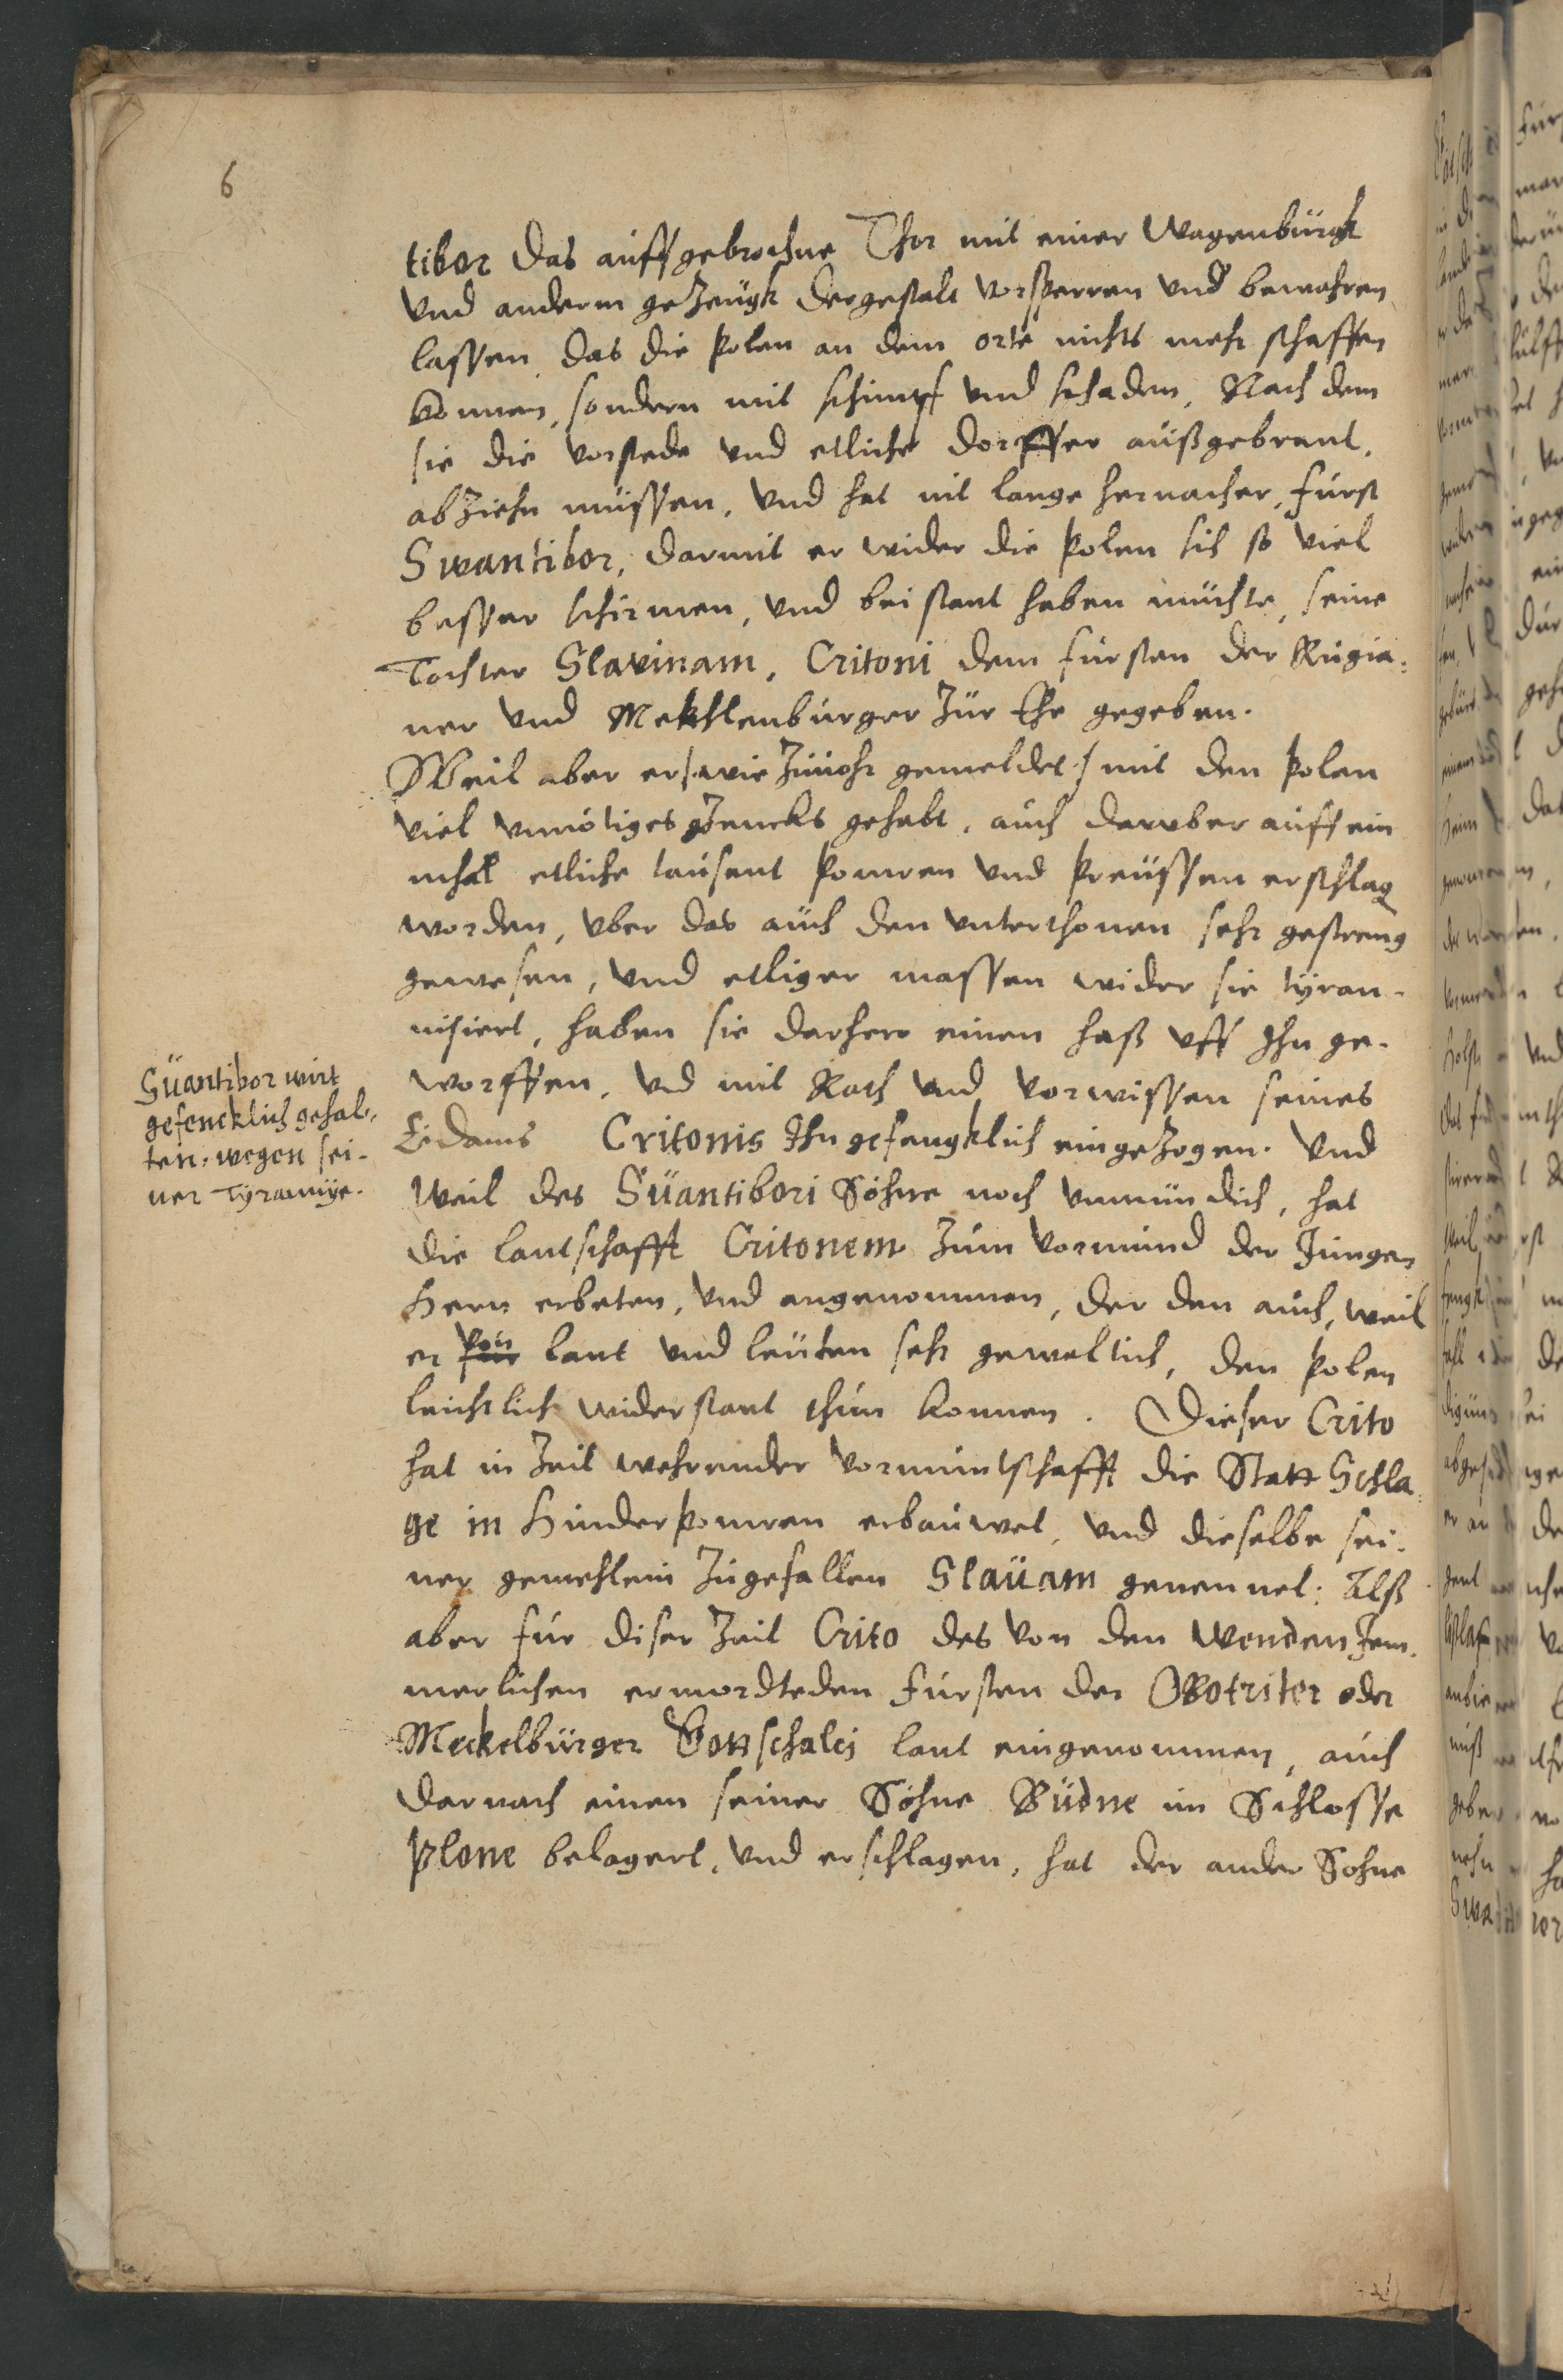 6
tibor das auffgebrochne Thor mit einer Wagenbürgk
Vnd anderm geZeügk dergestalt vorsperren Vnd bewahren
lassen, das die Polen an dem orte nichts mehr schaffen
konnen, sondern mit schimpf Vnd schaden, Nach dem
sie die Vorstede Vnd etliche dorffer außgebrant,
abZiehn müssen, Vnd hat nit lange hernacher, fürst
Swantibor, darmit er wider die Polen sich so Viel
besser schirmen, Vnd beistant haben müchte, seine
Tochter Slavinam, Critoni dem fürsten der Rügia:
ner Vnd Mekhlenbürger Zür Ehe gegeben.
Weil aber er /: wie Zúúohr gemeldet :/ mit den Polen
Viel Vnnötiges gZencks gehabt, auch darüber auff ein
mhal etliche tausent Pomren Vnd Preüssen erschlag
worden, Vber das auch den Vnterthonen sehr gestreng
gewesen, Vnd etliger massen wider sie tÿran-
nisiert, haben sie darhero einen haß Vff Ihn ge-
worffen, Vnd mit Rath Vnd Vorwissen seines
Eidams Critonis Ihn gefengklich eingeZogen. Vnd
Weil des Süantibori Söhne noch Vnmündich, hat
die lantschafft Critonem Züm Vormünd der Jüngen
Hern erbeten, Vnd angenommen, der den auch, weil
er für Von lant Vnd leüten sehr geweltich, den Polen
leichtlich widerstant thün konnen. Dieser Crito
hat in Zeit wehrender Vormüntschafft die Statt Schla
ge in Hinderpomren erbaüwet, Vnd dieselbe sei-
ner gemehlein Zügefallen Slaüam genennet: Alß
aber für diser Zeit Crito des Von den Wenden Jem-
merlichen ermordteden fürsten der Obotriter oder
Meckelbürger Gottschalci lant eingenommen, auch
darnach einen seiner Söhne Büdne im Schlosse
Plone belagert, Vnd erschlagen, hat der ander Sohne
Süantibor wirt
gefencklich gehal-
ten, wegen sei-
ner Tÿrannÿe.